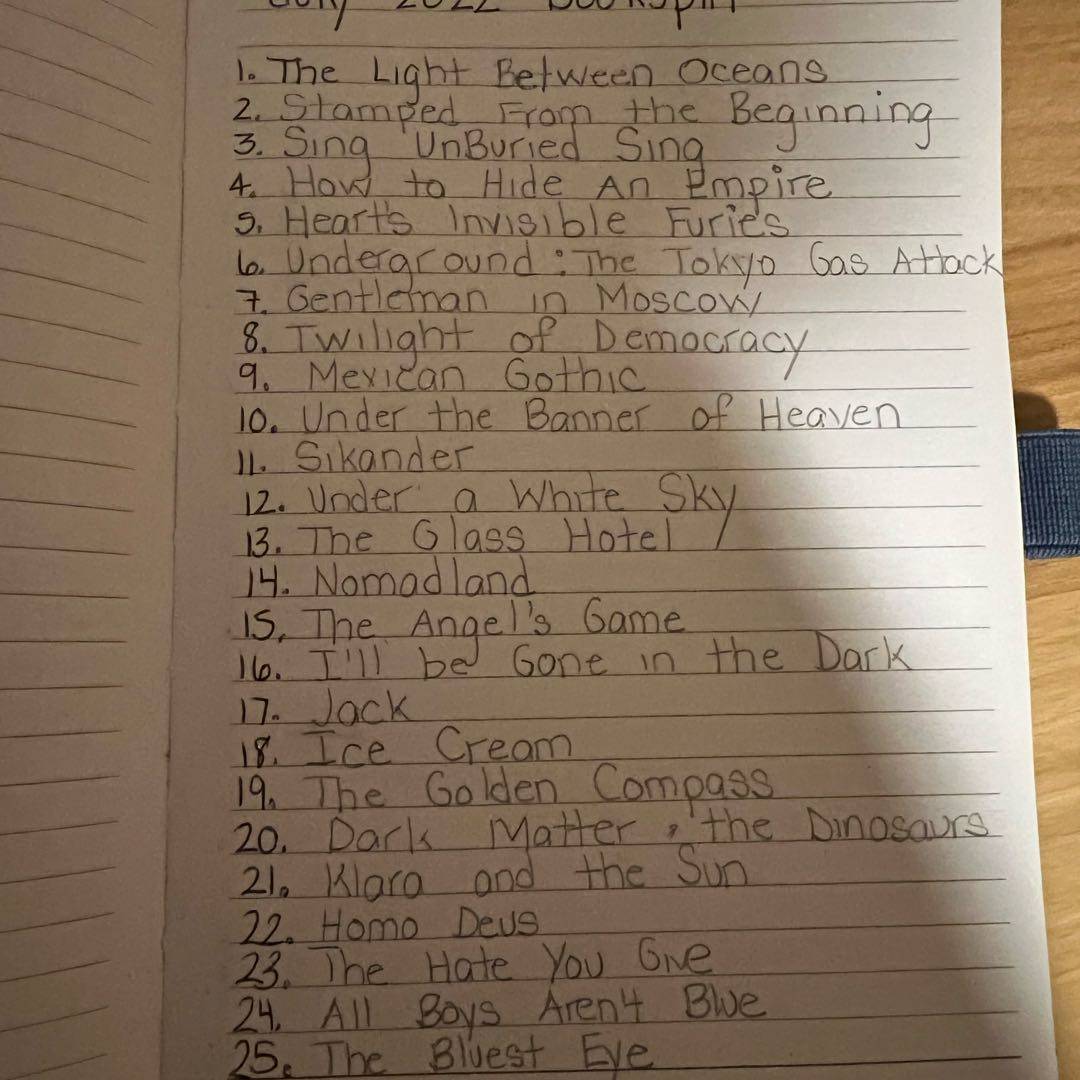 July 2022 Bookspin
1. The Light Between Oceans
2. Stamped From the Beginning
3. Sing UnBuried Sing
4. How to Hide An Empire
5. Heart's Invisible Furies
6. Underground: The Tokyo Gas Attack
7. Gentleman in Moscow
8. Twilight of Democracy
9. Mexican Gothic
10. Under the Banner of Heaven
11. Sikander
12. Under a White Sky
13. The Glass Hotel
14. Nomadland
15. The Angel's Game
16. I'll be Gone in the Dark
17. Jack
18. Ice Cream
19. The Golden Compass
20. Dark Matter & the Dinosaurs
21. Klara and the Sun
22. Homo Deus
23. The Hate You Give
24. All Boys Aren't Blue
25. The Bluest Eye